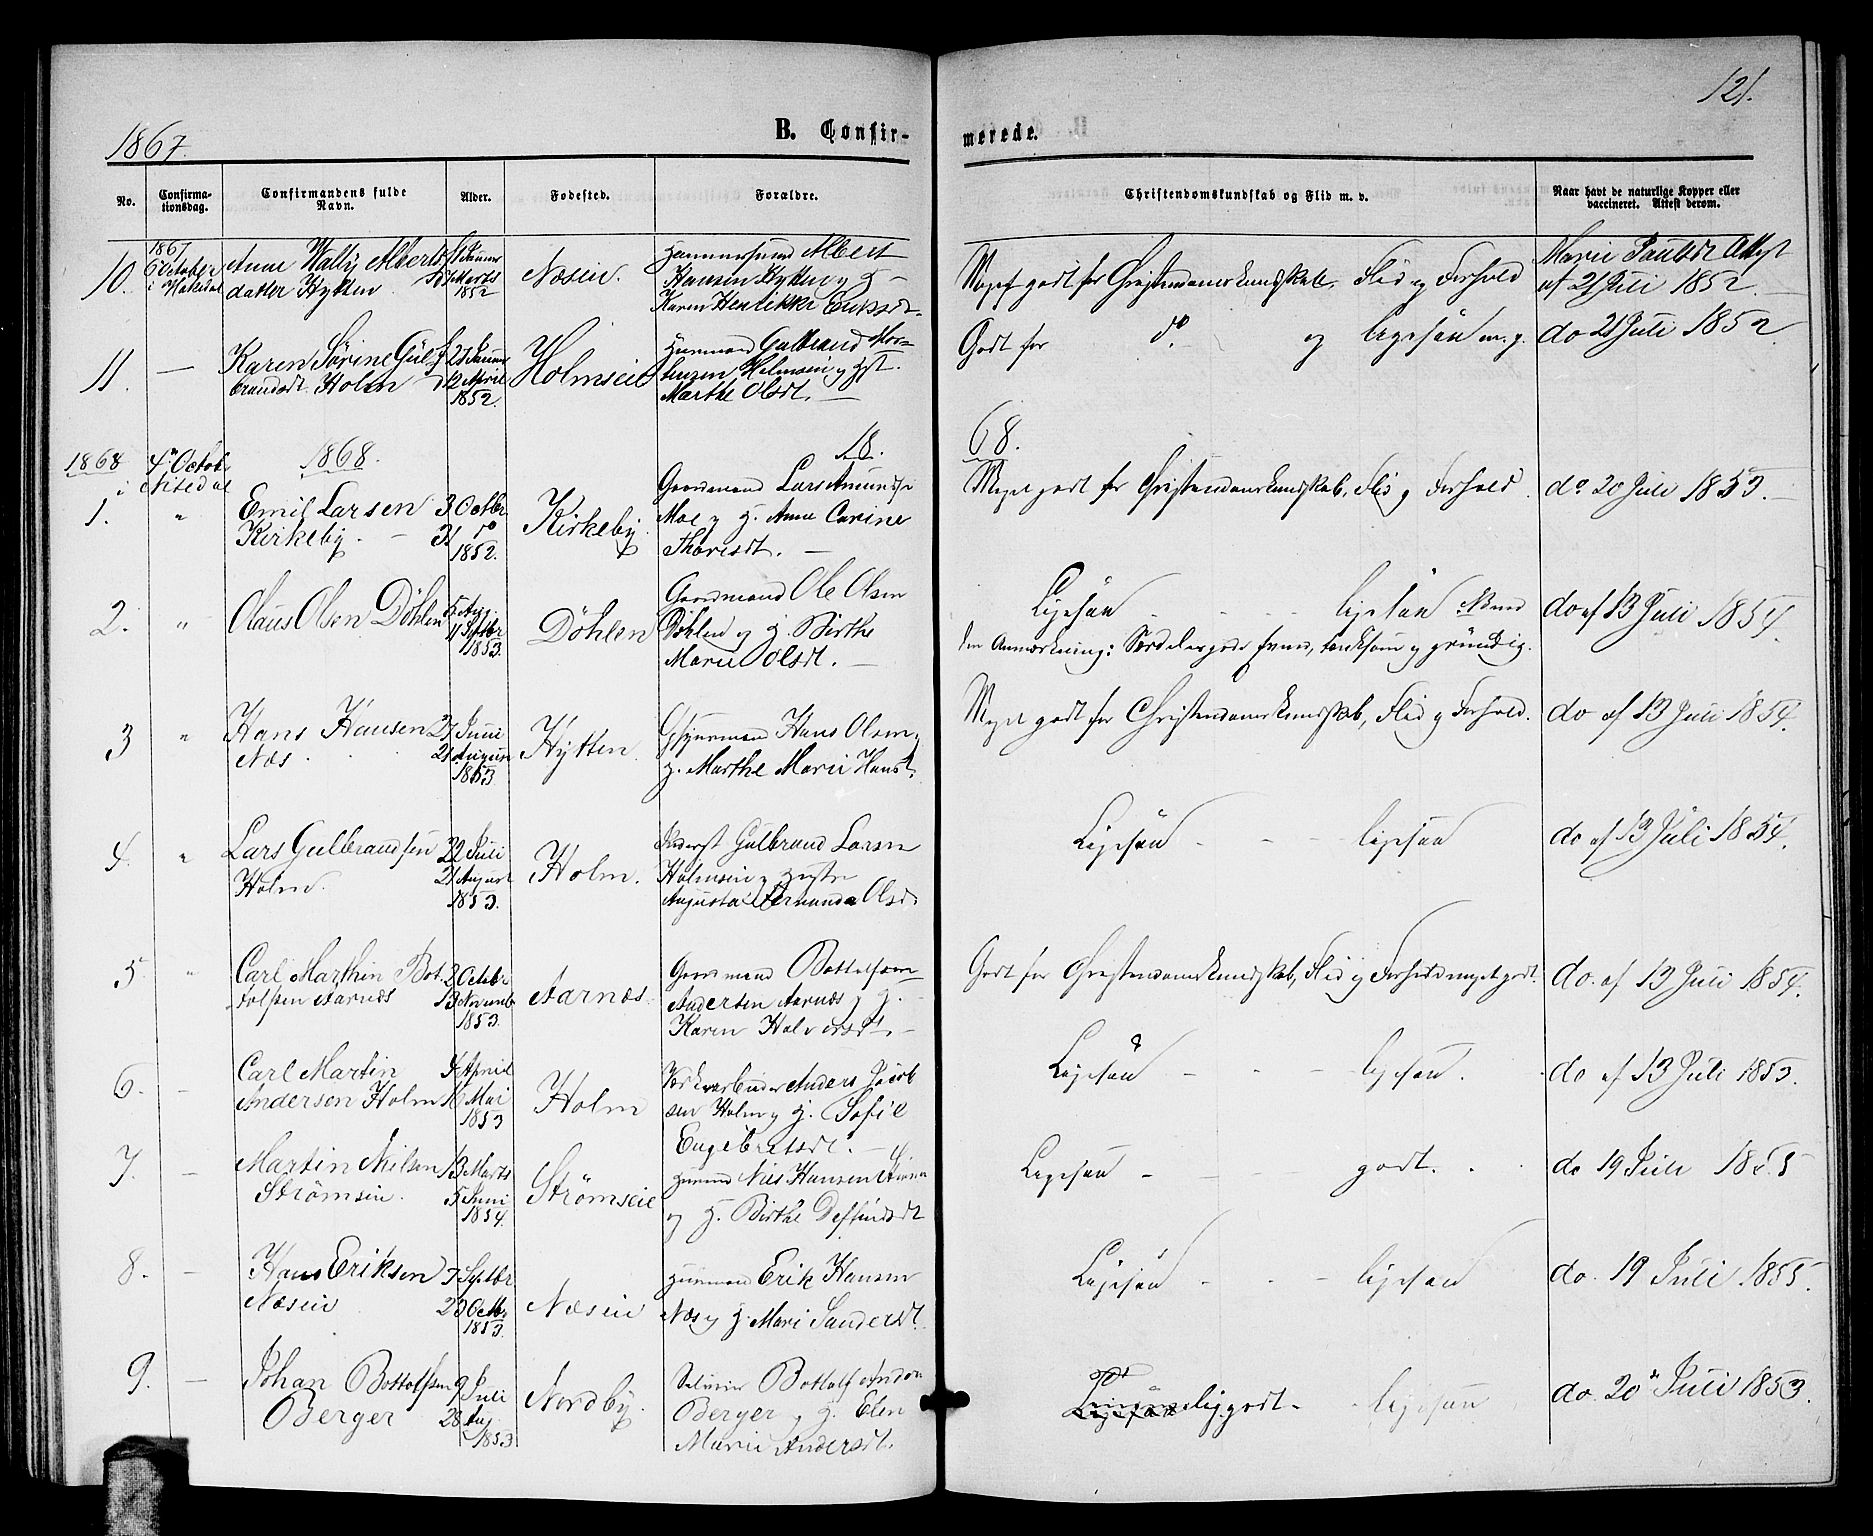 121.
1867.
B. Confir-
merede.
No.
Confirma-
tionsdag.
Confirmandens fulde
Navn.
Alder.
Fødested.
Forældre.
Christendomskundskab og Flid m. v.
Naar havt de naturlige Kopper eller
vaccineret. Attest derom.
10.
1867
6 October
i Hakedal
Anne Wally Alberts
datter Hytten
Marts
1852
Næseie.
Albert
Hansen Hytten og H
Karen Hendrikke Eriksdt.
Meget godt for Christendomskundskab, Flid og Forhold
Marie Paulsdt Attest
af 21 Juli 1852.
11.
—
Karen Sørine Gul-
brandsdt. Holm
12 April
1852.
Holmseie
Huusmand Gulbrand Mor-
tensen Holmseie og Hst.
Marthe Olsdt. —
Godt for do. og ligesaa m. g.
do 21 Juli 1852
1868
4de Octob.
i Nitedal
1868.
18.
68.
1.
"
Emil Larsen
Kirkeby. —
3 Octbr
31 do
1852.
Kirkeby.
Gaardmand Lars Amunds.
Moe og H. Anne Carine
Thorisdt. —
Meget godt for Christendomskundskab, Flid og Forhold.
do 20 Juli 1853. —
2.
"
Olaus Olsen Döhlen
5 Aug.
11 Septbr
1853.
Döhlen
Gaardmand Ole Olsen
Döhlen og H. Birthe
Marie Olsdt. —
Ligesaa - - - ligesaa
den Anmærkning: Særdeles gode Evner, tænksom og gründig.
do af 13 Juli 1854.
3
"
Hans Hansen
Næs.
27 Juni
21 August
1853
Hytten.
Hans Olsen
H. Marthe Marie Hansdt.
Meget godt for Christendomskundskab, Flid og Forhold.
do af 13 Juli 1854.
4.
"
Lars Gulbrandsen
Holm.
22 Juli
21 August
1853.
Holm.
Inderst Gulbrand Larsen
Holmseie og Hustru
Augusta Olsd.
Ligesaa - - - ligesaa
do af 13 Juli 1854.
5
"
Carl Marthin Bot-
tolfsen Aarnæs
2 Octobr
13 Novemb
1853.
Aarnæs.
Gaardmand Bottolf
Andersen Aarnæs og H. -
Karen Halvorsdt. -
Godt for Christendomskundskab, Flid og Forhold meget godt.
do. af 13 Juli 1854.
6.
—
Carl Martin
Andersen Holm
7 April
16 Mai
1853
Holm
Anders Jacob
sen Holm og H. Sofie
Engebretsdt. —
Ligesaa - - - ligesaa.
do af 13 Juli 1853.
7.
—
Martin Nilsen
Strömseie.
13 Marts
5 Juni
1854.
Strömseie
Huusmd Nils Hansen
og H. Birthe
Ligesaa - - - godt.
do 19 Juli 1855
8.
—
Hans Eriksen
Næseie
7 Septbr
23 Octbr
1853.
Næseie
Huusmand Erik Hansen
Næs og H. Mari Sandersdt.
Ligesaa - - - ligesaa
do. 19 Juli 1855.
9.
—
Johan Bottolfsen
Berger
9 Juli
28 Aug
1853
Nordby.
Bottolf
Berger og H. Elen
Marie Andersdt.
godt - ligesaa
do. 20de Juli 1853.